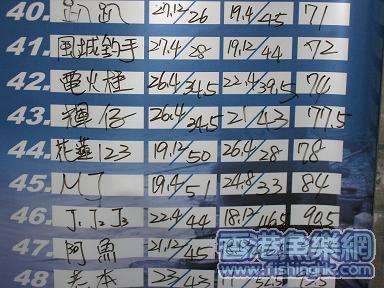 40. 趴趴 27.12/26 19.4/45 71
41. 風城釣手 27.4/28 19.12/44 72
42. 電火柱 26.4/34.5 22.4/39.5 74
43. 輝仔 26.4/34.5 21/43 77.5
44. 花蓮123 19.12/50 26.4/28 78
45. MJ 19.4/51 24.8/33 84
46. J1J2J3 22.4/44 18.12/46.5 90.5
47. 阿魚 21.12/45
48 老本 23/43
香港魚樂網
www.fishingfk.com